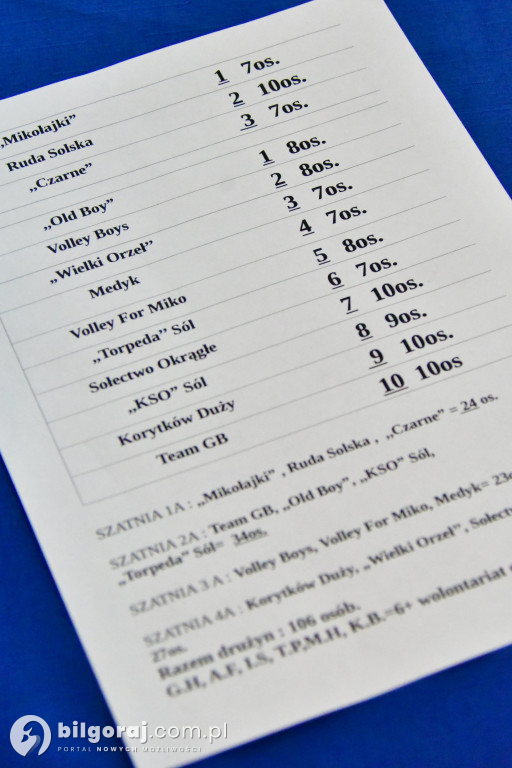 „Mikołajki” 1 7os.
Ruda Solska 2 10os.
„Czarne” 3 7os.
„Old Boy” 1 8os.
Volley Boys 2 8os.
„Wielki Orzeł” 3 7os.
Medyk 4 7os.
Volley For Miko 5 8os.
„Torpeda” Sól 6 7os.
Sołectwo Okrągłe 7 10os.
„KSO” Sól 8 9os.
Korytków Duży 9 10os.
Team GB 10 10os
SZATNIA 1A : „Mikołajki” , Ruda Solska , „Czarne” = 24 os.
SZATNIA 2A : Team GB, „Old Boy” , „KSO” Sól,
„Torpeda” Sól= 34os.
SZATNIA 3 A : Volley Boys, Volley For Miko, Medyk= 23o
SZATNIA 4A : Korytków Duży, „Wielki Orzeł” , Sołectw
27os.
Razem drużyn : 106 osób.
G.H, A.F, I.S, T.P,M.H, K.B.=6+ wolontariat
bilgoraj.com.pl
PORTAL NOWYCH MOŻLIWOŚCI